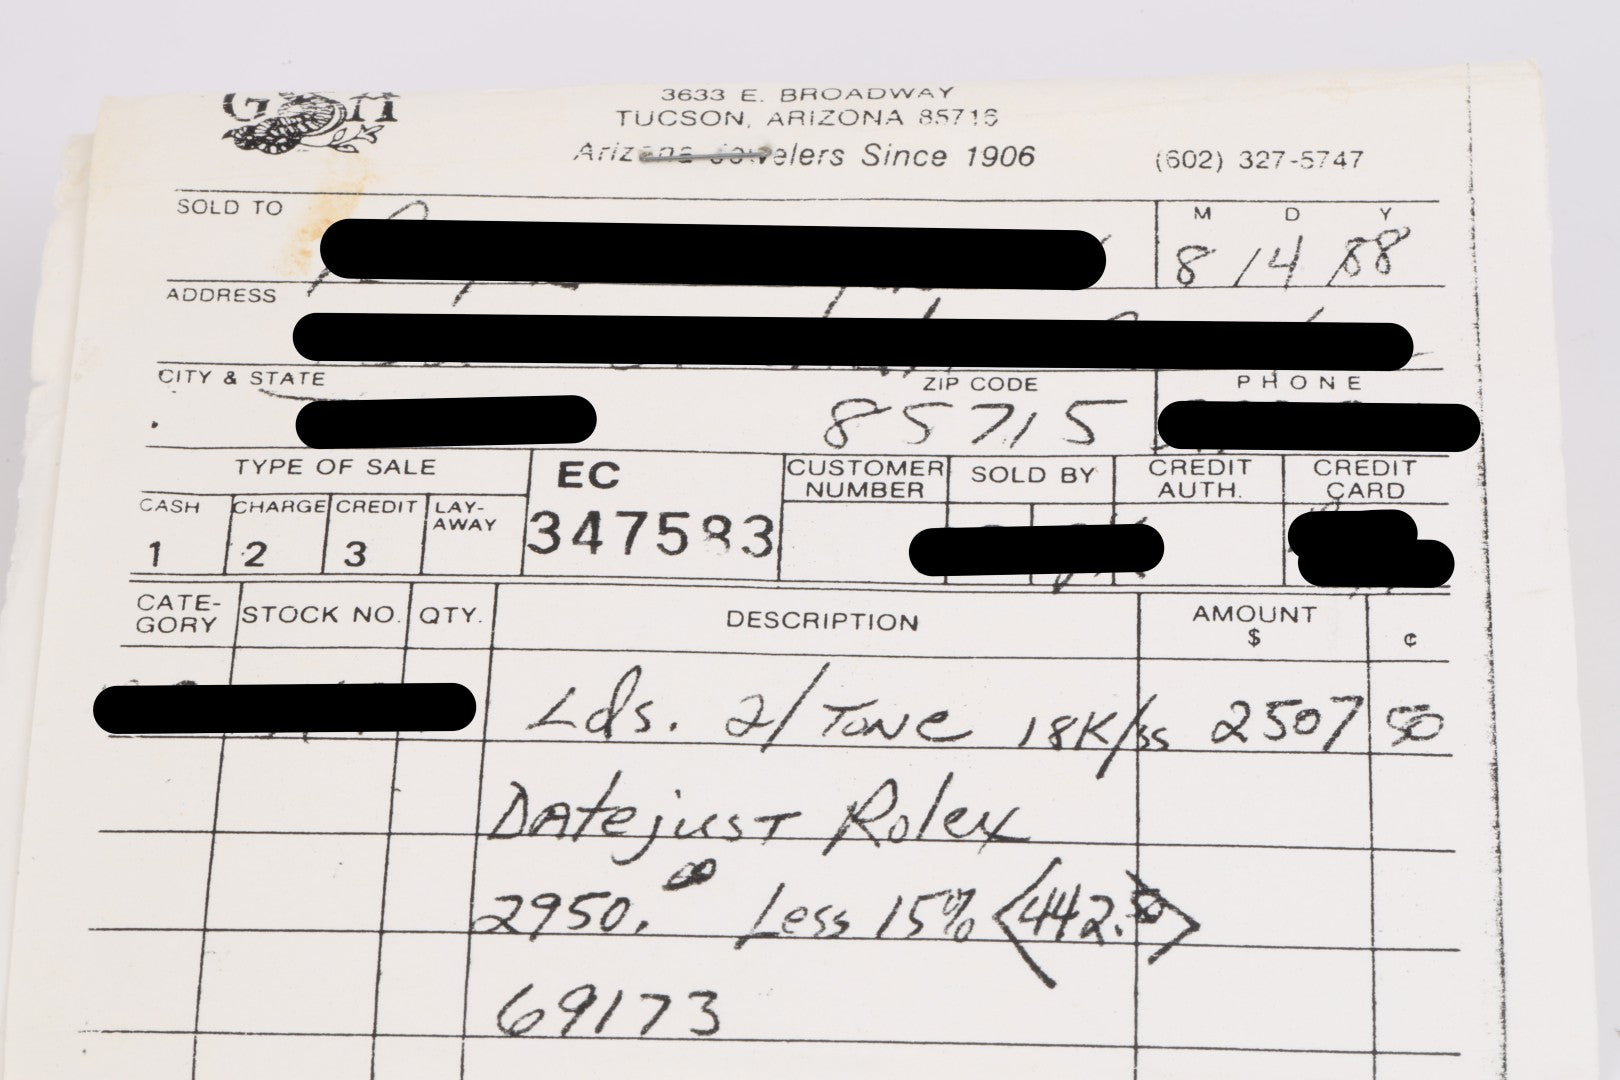 3633 E. BROADWAY
TUCSON, ARIZONA 85716
Arizona Jewelers Since 1906 (602) 327-5747
SOLD TO M D Y
8 /14 /88
ADDRESS
CITY & STATE ZIP CODE PHONE
85715
TYPE OF SALE EC CUSTOMER NUMBER SOLD BY CREDIT AUTH. CREDIT CARD
CASH CHARGE CREDIT LAY-AWAY
1 2 3 347583
CATE-GORY STOCK NO. QTY. DESCRIPTION AMOUNT $ ¢
Lds. 2/Tone 18K/ss 2507 50
Datejust Rolex
2950.00 Less 15% <442.50>
69173